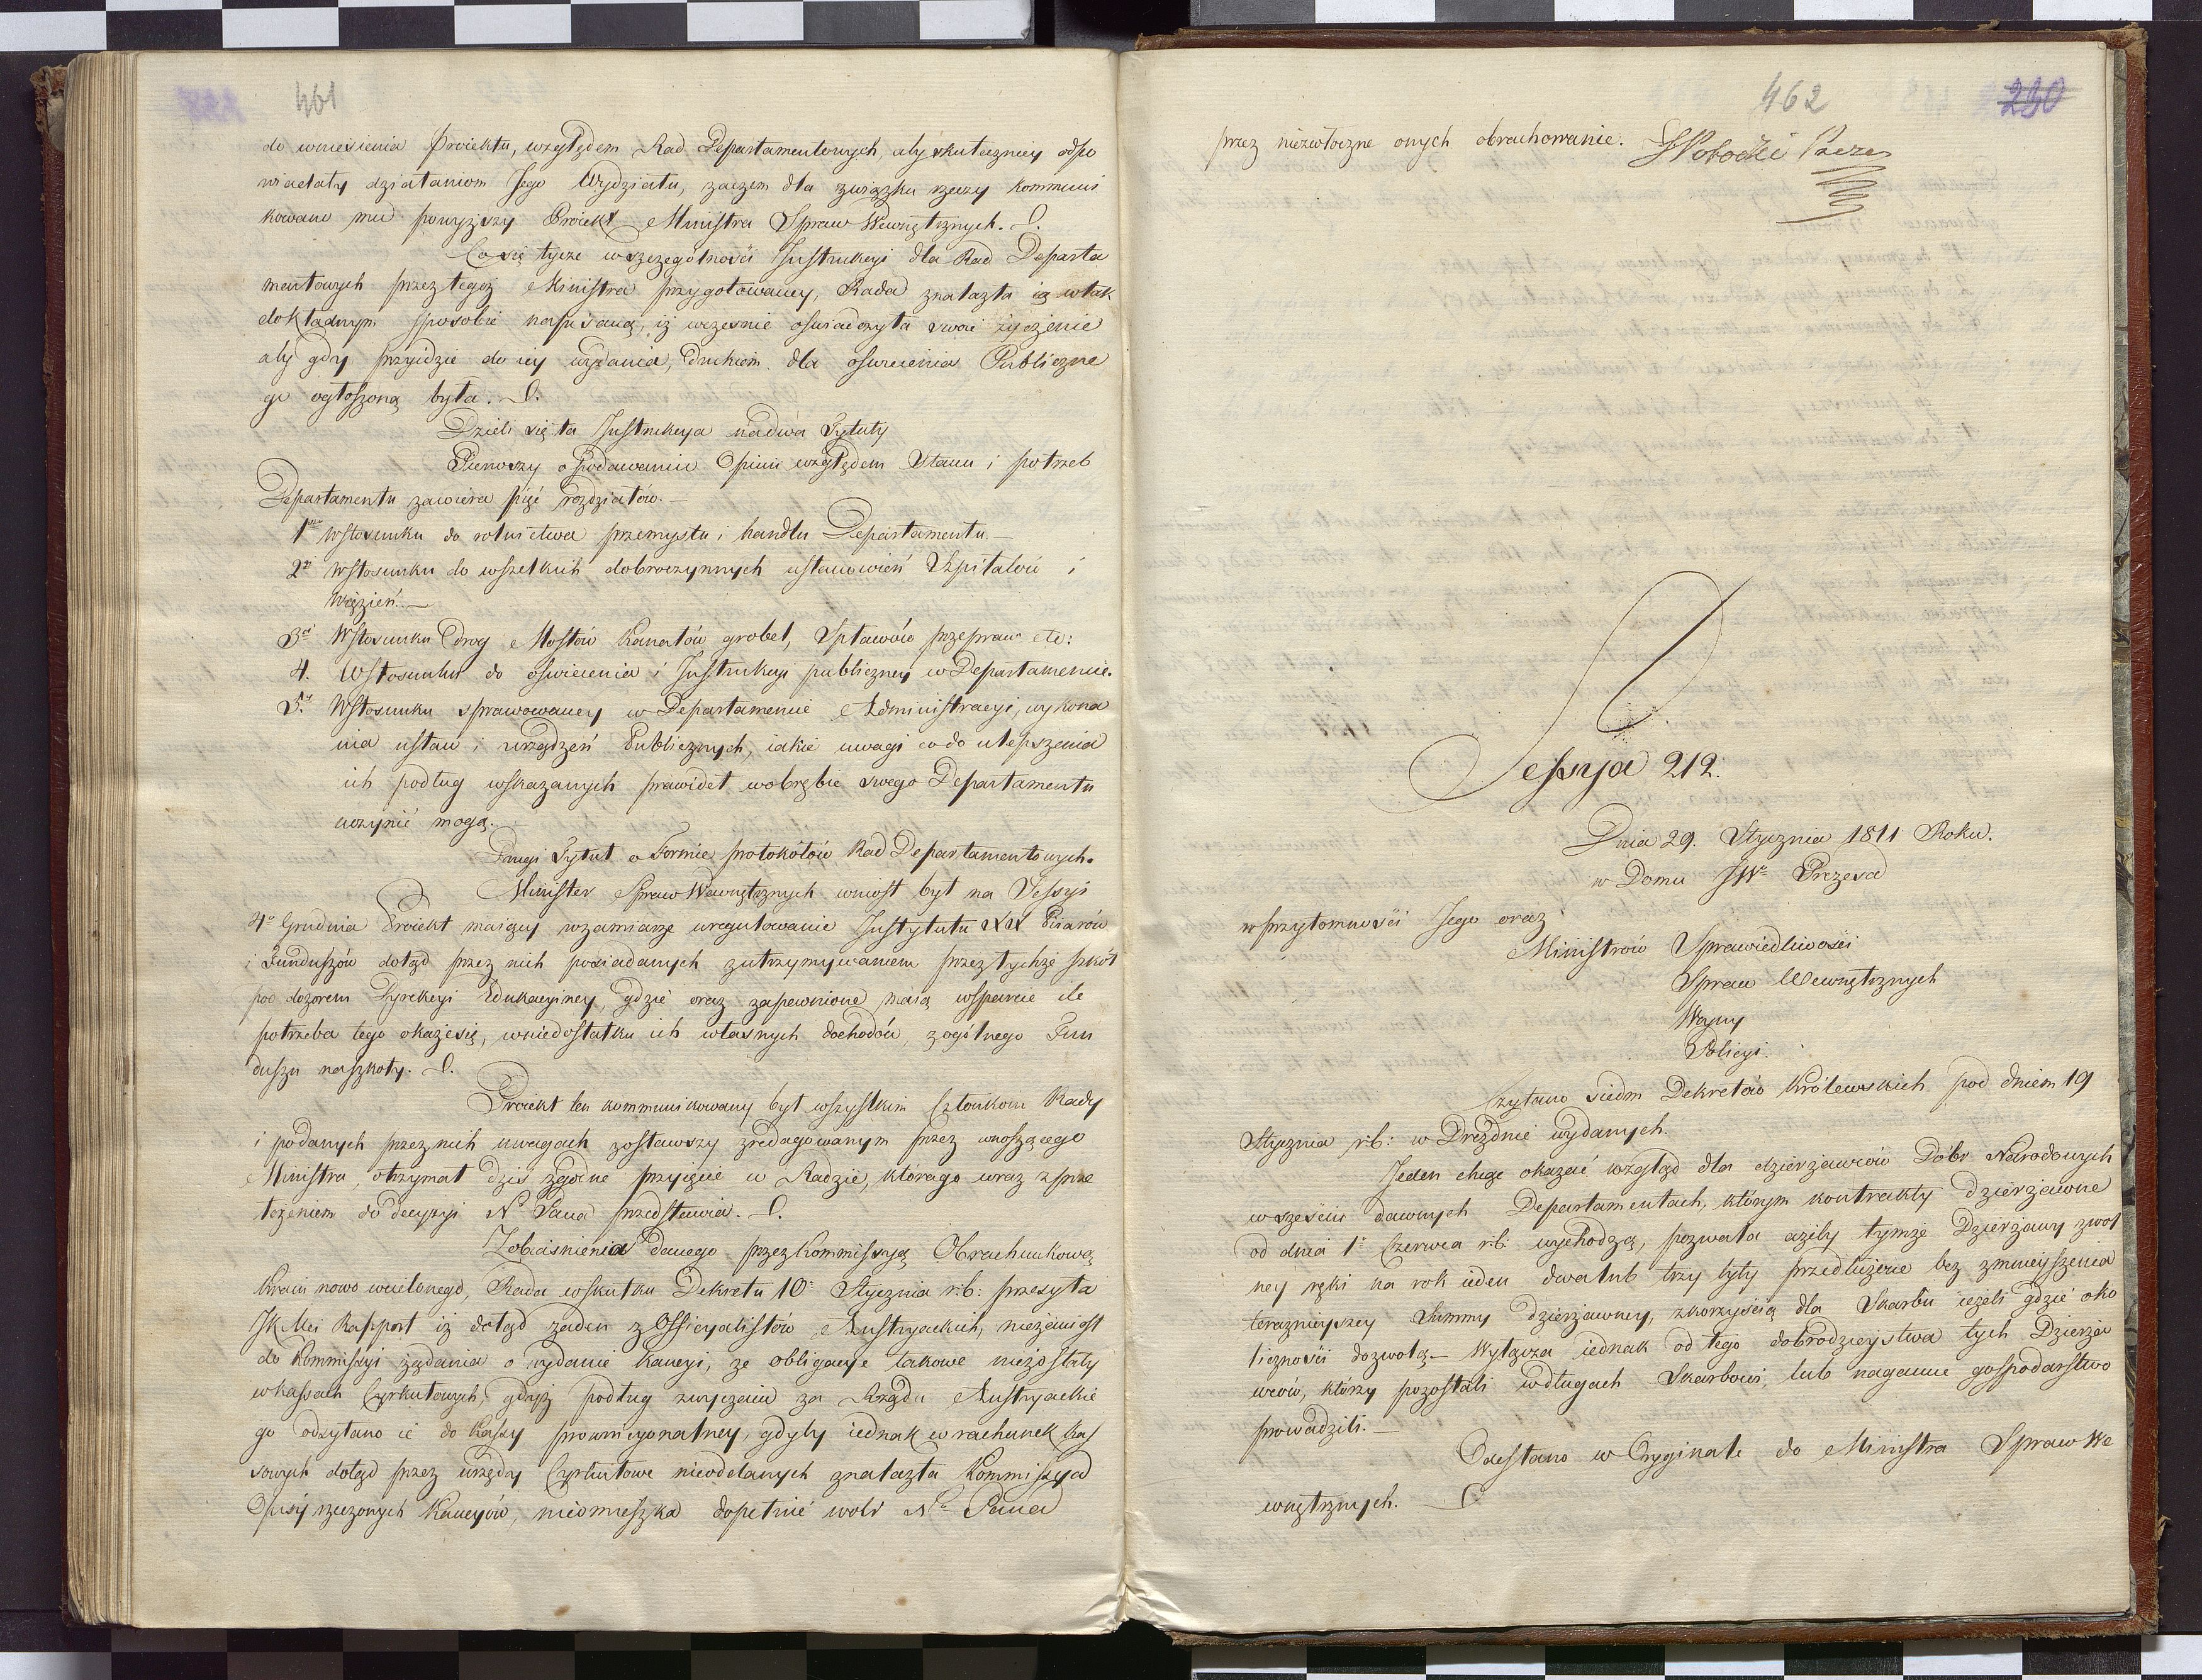 461
do wniesienia Proiektu, względem Rad Departamentowych, aby skuteczniey odpo
wiadały działaniom Jego Wydziału, zaczem dla związku rzeczy kommuni
kowano mu powyższy Proiekt Ministra Spraw Wewnętrznych.
Co się tycze w szczegulności Instrukcyi dla Rad Departa
mentowych przez tegoż Ministra przygotowaney, Rada znalazła ią w tak
dokładnym sposobie napisaną, iż wcześnie oświadczyła swoie życzenie
aby gdy przyidzie do iey wydania, drukiem dla oświecenia Publiczne
go ogłoszoną była.
Dzieli się ta Instrukcya na dwa Tytuły
Pierwszy o podawaniu Opinii względem Stanu i potrzeb
Departamentu zawiera pięć rozdziałów.—
1mo W stosunku do rolnictwa przemysłu i handlu Departamentu.—
2o W stosunku do wszelkich dobroczynnych ustanowień Szpitalów i
Więzień.—
3o W stosunku drog Mostów Kanałów grobel, Spławów przepraw etc:
4. W stosunku do oświecenia i Instrukcyi publiczney w Departamencie.
5o W stosunku sprawowaney w Departamencie Administracyi, wykona
nia ustaw i urządzeń Publicznych, iakie uwagi co do ulepszenia
ich podług wskazanych prawideł w obrębie swego Departamentu
uczynić mogą.
Drugi Tytuł o Formie protokółów Rad Departamentowych.
Minister Spraw Wewnętrznych wniosł był na Sessyi
4o Grudnia Proiekt maiący w zamiarze uregulowanie Instytutu XX Piiarów
i Funduszów dotąd przez nich posiadanych z utrzymywaniem przez tychże szkół
pod dozorem Dyrekcyi Edukacyiney, gdzie oraz zapewnione maią wsparcie ile
potrzeba tego okaże się, w niedostatku ich własnych dochodów, z ogólnego Fun
duszu na szkoły.
Proiekt ten kommunikowany był wszystkim Członkom Rady
i podanych przez nich uwagach zostawszy zredagowanym przez wnoszącego
Ministra, otrzymał dziś zgodne przyięcie w Radzie, którego wraz z prze
łożeniem do decyzyi No Pana przedstawia.
Z obiaśnienia danego przez Kommissyą Obrachunkową
Kraiu nowo wcielonego, Rada w skutku Dekretu 10o Stycznia r.b: przesyła
JK Mci Rapport iż dotąd żaden z Officyalistów Austryackich, nie zaniosł
do Kommissyi żądania o wydanie kaucyi, że obligacye takowe nie zostały
w kassach Cyrkułowych, gdyż podług zwyczaiu za Rządu Austryackie
go odsyłano ie do Kassy prowincyonalney, gdyby iednak w rachunek kas
sowych dotąd przez urzędy Cyrkułowe nieodelanych znalazła Kommissya
Opisy rzeczonych Kaucyów, nieomieszka dopełnić woli No Pana
462
230
przez niezwłoczne onych obrachowanie.
Sessyja 212.
Dnia 29. Stycznia 1811 Roku.
w Domu JWo Prezesa
w przytomności Jego oraz
Ministrów Sprawiedliwości
Spraw Wewnętrznych
Woyny
Policyi.
Czytano siedm Dekretów Królewskich pod dniem 19
Stycznia r.b: w Dreźdnie wydanych.
Jeden chcąc okazać wzgląd dla dzierżawców Dóbr Narodowych
w sześciu dawnych Departamentach, którym kontrakty dzierżawne
od dnia 1o Czerwca r.b. wychodzą, pozwala ażeby tymże Dzierżawy z wol
ney ręki na rok ieden dwa lub trzy były przedłużone bez zmnieyszenia
teraznieyszey Summy dzierżawney, z korzyścią dla Skarbu ieżeli gdzie oko
liczności dozwolą.— Wyłącza iednak od tego dobrodzieystwa tych Dzierża
wców, którzy pozostali w długach Skarbowi, lub naganne gospodarstwo
prowadzili.—
Odesłano w Oryginale do Ministra Spraw We
wnętrznych.